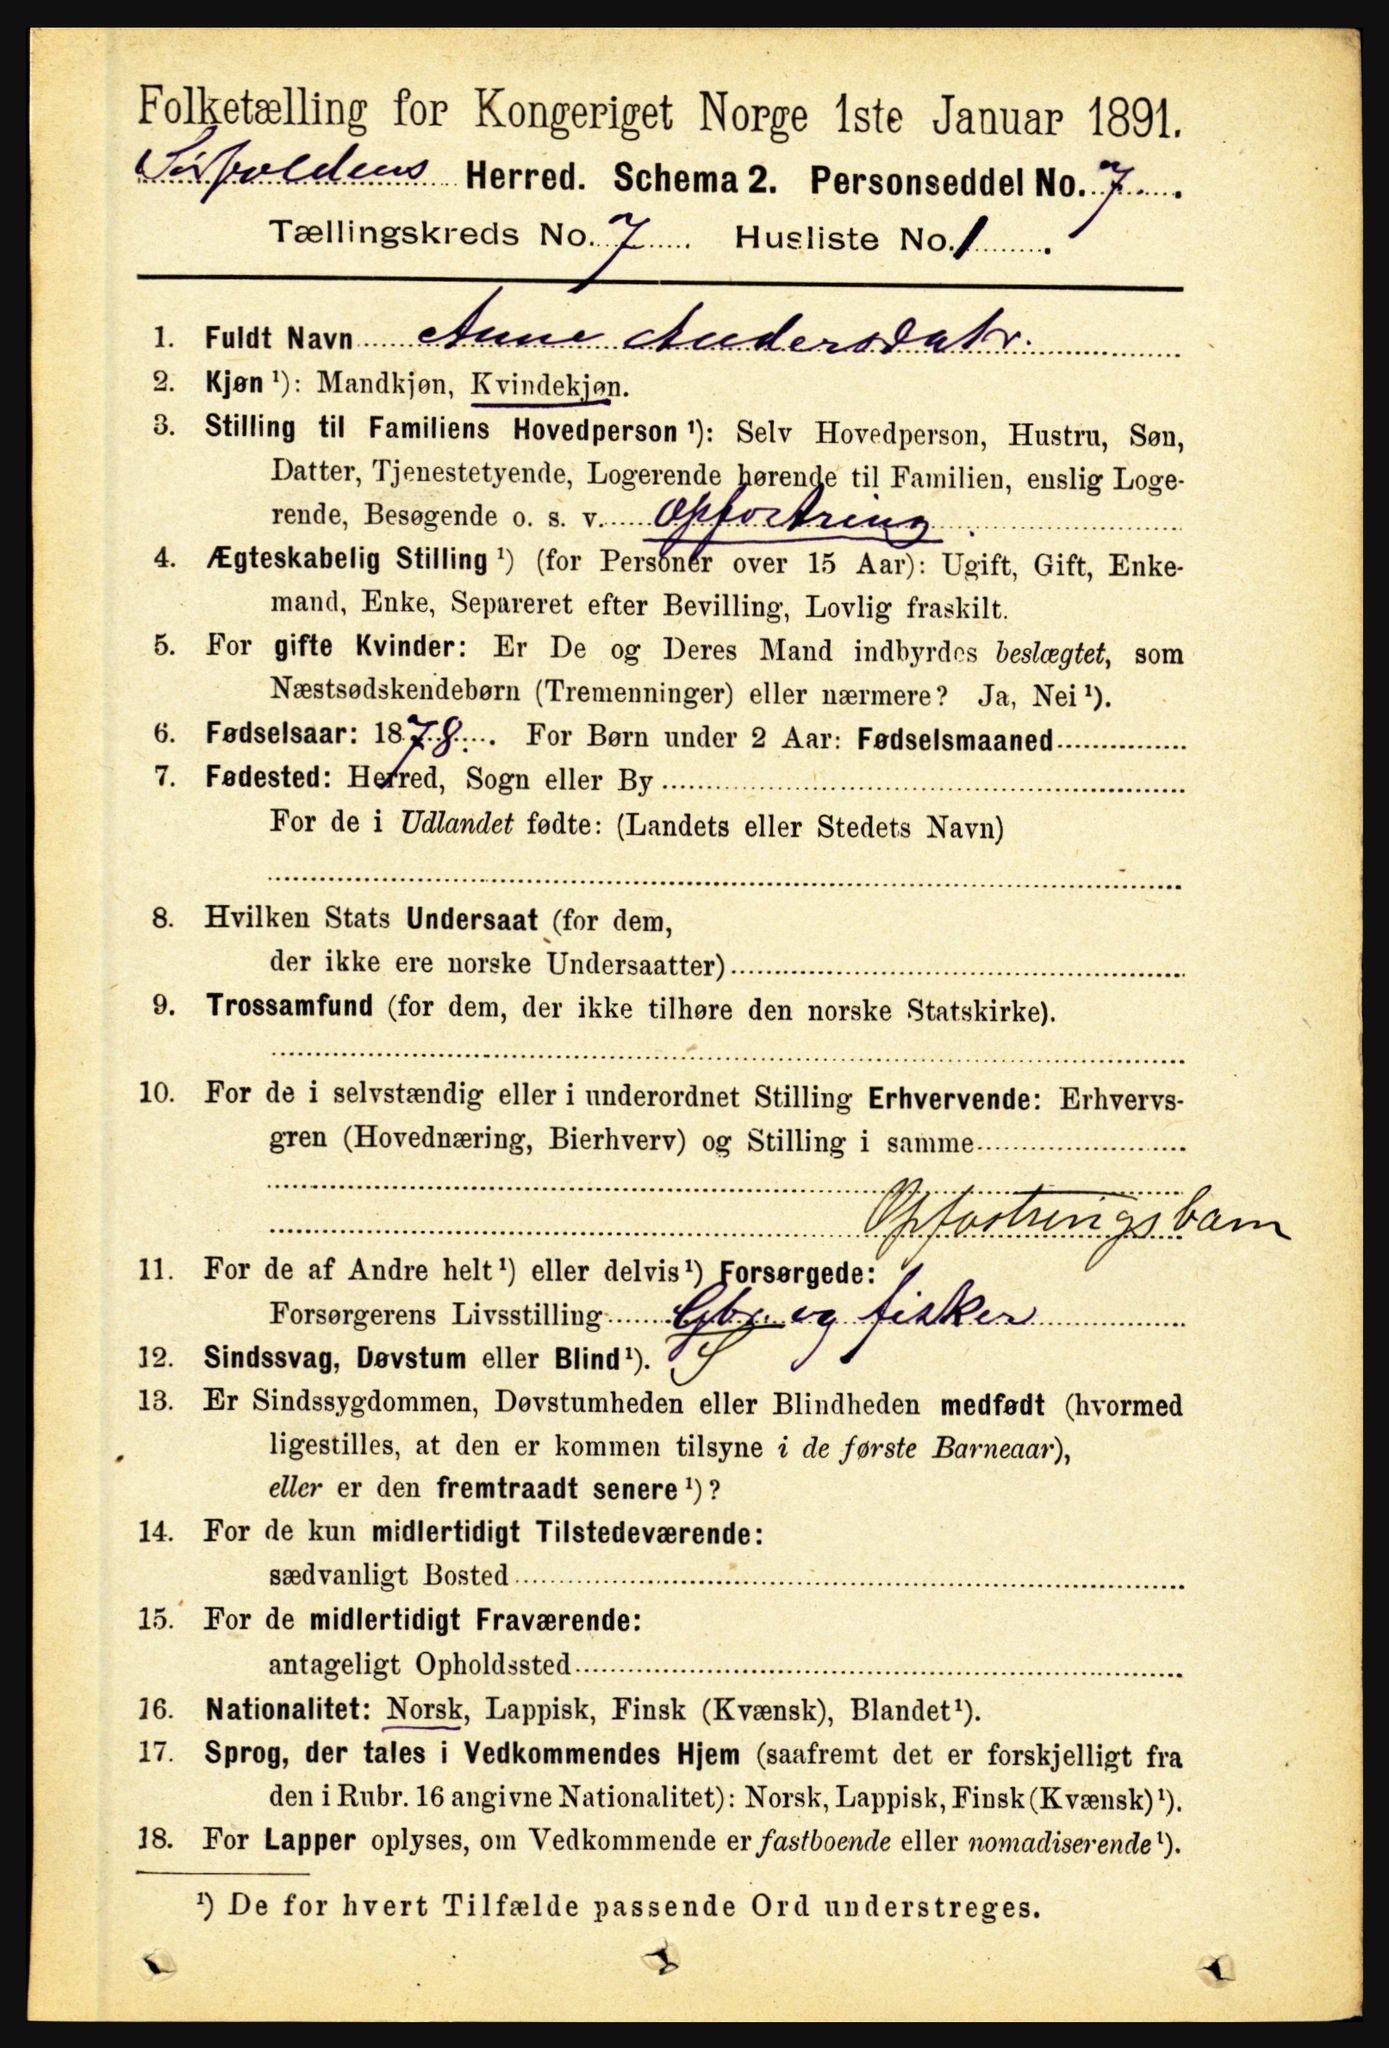 Folketælling for Kongeriget Norge 1ste Januar 1891.
Sørfoldens Herred. Schema 2. Personseddel No. 7.
Tællingskreds No. 7 Husliste No. 1.
1. Fuldt Navn Anne Andersdatr.
2. Kjøn ¹): Mandkjøn, Kvindekjøn.
3. Stilling til Familiens Hovedperson ¹): Selv Hovedperson, Hustru, Søn,
Datter, Tjenestetyende, Logerende hørende til Familien, enslig Loge-
rende, Besøgende o. s. v. Opfostring.
4. Ægteskabelig Stilling ¹) (for Personer over 15 Aar): Ugift, Gift, Enke-
mand, Enke, Separeret efter Bevilling, Lovlig fraskilt.
5. For gifte Kvinder: Er De og Deres Mand indbyrdes beslægtet, som
Næstsødskendebørn (Tremenninger) eller nærmere? Ja, Nei ¹).
6. Fødselsaar: 1878. For Børn under 2 Aar: Fødselsmaaned
7. Fødested: Herred, Sogn eller By
For de i Udlandet fødte: (Landets eller Stedets Navn)
8. Hvilken Stats Undersaat (for dem,
der ikke ere norske Undersaatter)
9. Trossamfund (for dem, der ikke tilhøre den norske Statskirke).
10. For de i selvstændig eller i underordnet Stilling Erhvervende: Erhvervs-
gren (Hovednæring, Bierhverv) og Stilling i samme
Opfostringsbarn
11. For de af Andre helt ¹) eller delvis ¹) Forsørgede:
Forsørgerens Livsstilling Gbr. og fisker
12. Sindssvag, Døvstum eller Blind ¹). S
13. Er Sindssygdommen, Døvstumheden eller Blindheden medfødt (hvormed
ligestilles, at den er kommen tilsyne i de første Barneaar),
eller er den fremtraadt senere ¹)?
14. For de kun midlertidigt Tilstedeværende:
sædvanligt Bosted
15. For de midlertidigt Fraværende:
antageligt Opholdssted
16. Nationalitet: Norsk, Lappisk, Finsk (Kvænsk), Blandet ¹).
17. Sprog, der tales i Vedkommendes Hjem (saafremt det er forskjelligt fra
den i Rubr. 16 angivne Nationalitet): Norsk, Lappisk, Finsk (Kvænsk) ¹).
18. For Lapper oplyses, om Vedkommende er fastboende eller nomadiserende ¹).
¹) De for hvert Tilfælde passende Ord understreges.